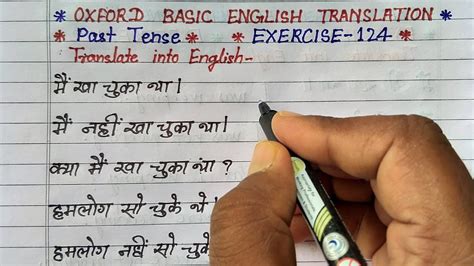 * OXFORD BASIC ENGLISH TRANSLATION *
* Past Tense * EXERCISE-124 *
Translate into English-
मैं खा चुका था।
मैं नहीं खा चुका था।
क्या मैं खा चुका था ?
हमलोग सो चुके थे।
हमलोग नहीं सो चुके